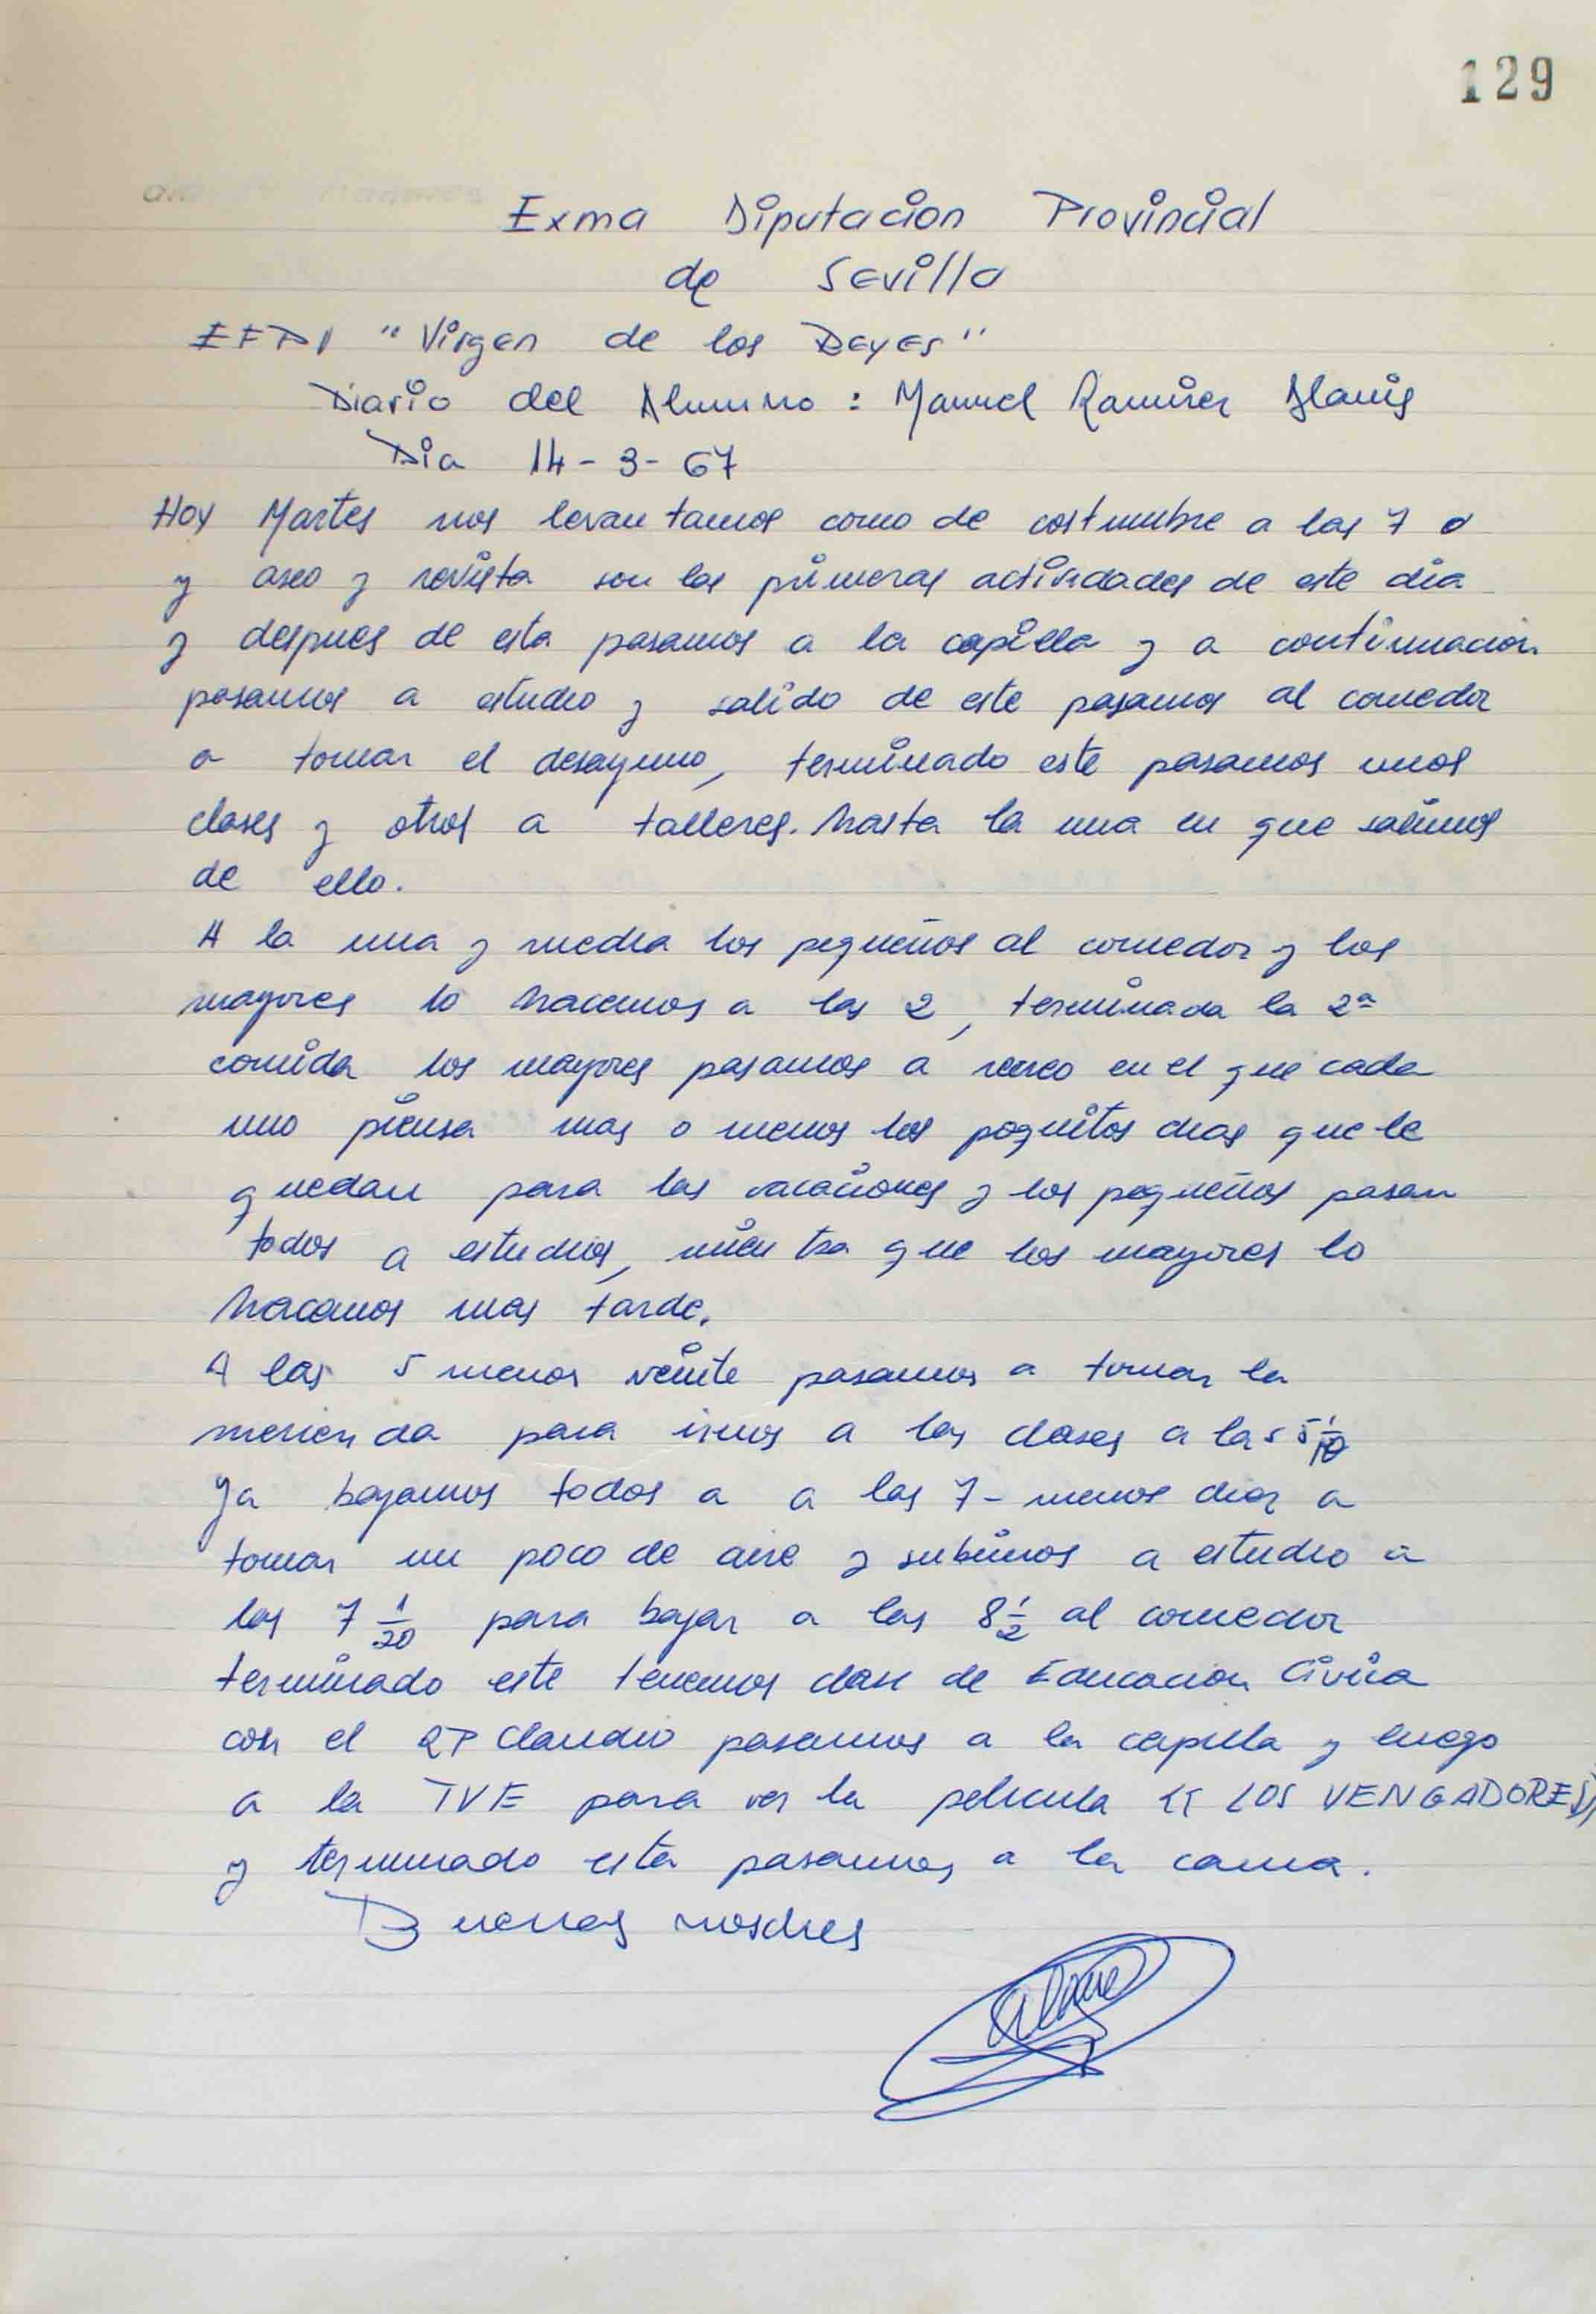 129
Exma Diputacion Provincial
de Sevilla
EFPI "Virgen de los Reyes"
Diario del Alumno : Manuel Ramirez Alanis
Dia 14-3-67
Hoy Martes nos levantamos como de costumbre a las 7 
y aseo y revista son las primeras actividades de este dia
y despues de esta pasamos a la capilla y a continuacion
pasamos a estudio y salido de este pasamos al comedor
a tomar el desayuno, terminado este pasamos unos
clases y otros a talleres. hasta la una en que salimos
de ello.
A la una y media los pequeños al comedor y los
mayores lo hacemos a las 2, terminada la 2ª
comida los mayores pasamos a recreo en el que cada
uno piensa mas o menos los poquitos dias que le
quedan para las vacaciones y los pequeños pasan
todos a estudios, mientra que los mayores lo
hacemos mas tarde.
A las 5 menos veinte pasamos a tomar la
merienda para irnos a las clases a las 5 1/10
ya bajamos todos a a las 7 - menos diez a
tomar un poco de aire y subimos a estudio a
las 7 1/20 para bajar a las 8 1/2 al comedor
terminado este tenemos clase de Educacion Civica
con el RP Claudio pasamos a la capilla y luego
a la TVE para ver la pelicula "LOS VENGADORES"
y terminado esta pasamos a la cama.
Buenas nosches